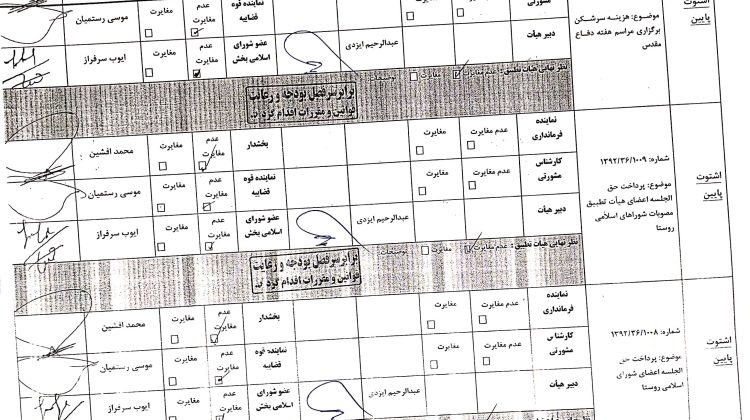 اشتوت
پایین
موضوع: هزینه سرشکن
برگزاری مراسم هفته دفاع
مقدس
مشورتی
دبیر هیأت
عبدالرحیم ایزدی
نماینده قوه
قضاییه
عدم
مغایرت
مغایرت
موسی رستمیان
عضو شورای
اسلامی بخش
عدم
مغایرت
مغایرت
ایوب سرفراز
نظر نهایی هیأت تطبیق: عدم مغایرت مغایرت توضیحات
برابر سرفصل بودجه و رعایت
قوانین و مقررات اقدام گردید.
اشتوت
پایین
شماره: ۱۳۹۲/۳۶/۱۰۰۹
موضوع: پرداخت حق
الجلسه اعضای هیأت تطبیق
مصوبات شوراهای اسلامی
روستا
نماینده
فرمانداری
عدم مغایرت
مغایرت
بخشدار
عدم
مغایرت
مغایرت
محمد افشین
کارشناس
مشورتی
عدم مغایرت
مغایرت
نماینده قوه
قضاییه
عدم
مغایرت
مغایرت
موسی رستمیان
دبیر هیأت
عبدالرحیم ایزدی
عضو شورای
اسلامی بخش
عدم
مغایرت
مغایرت
ایوب سرفراز
نظر نهایی هیأت تطبیق: عدم مغایرت مغایرت توضیحات
برابر سرفصل بودجه و رعایت
قوانین و مقررات اقدام گردید.
اشتوت
پایین
شماره: ۱۳۹۲/۳۶/۱۰۰۸
موضوع: پرداخت حق
الجلسه اعضای شورای
اسلامی روستا
نماینده
فرمانداری
عدم مغایرت
مغایرت
بخشدار
عدم
مغایرت
مغایرت
محمد افشین
کارشناس
مشورتی
عدم مغایرت
مغایرت
نماینده قوه
قضاییه
عدم
مغایرت
مغایرت
موسی رستمیان
دبیر هیأت
عبدالرحیم ایزدی
عضو شورای
اسلامی بخش
عدم
مغایرت
مغایرت
ایوب سرفراز